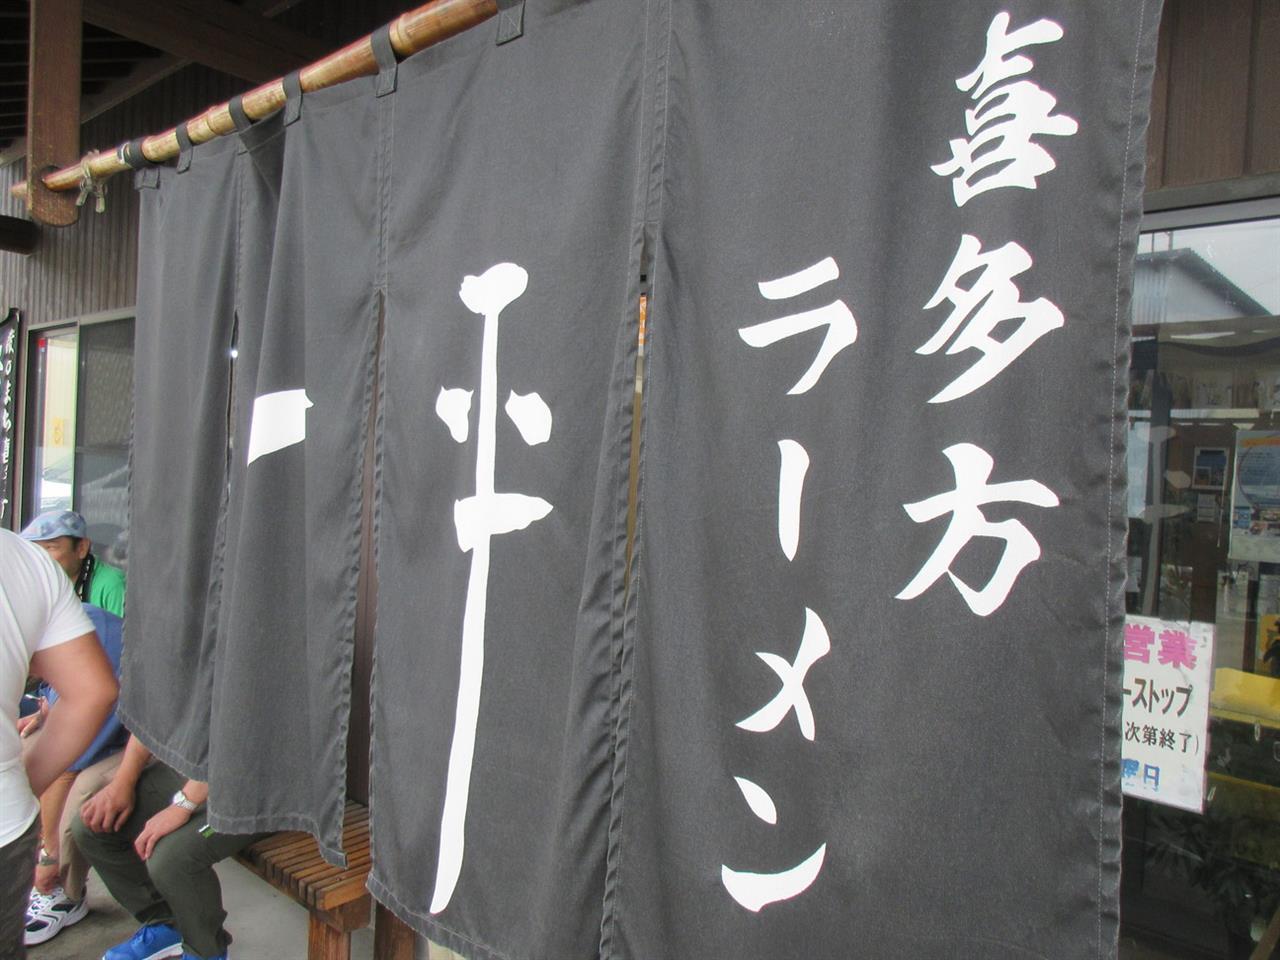 喜多方
ラーメン
一平
営業
ーストップ
次第終了)
曜日